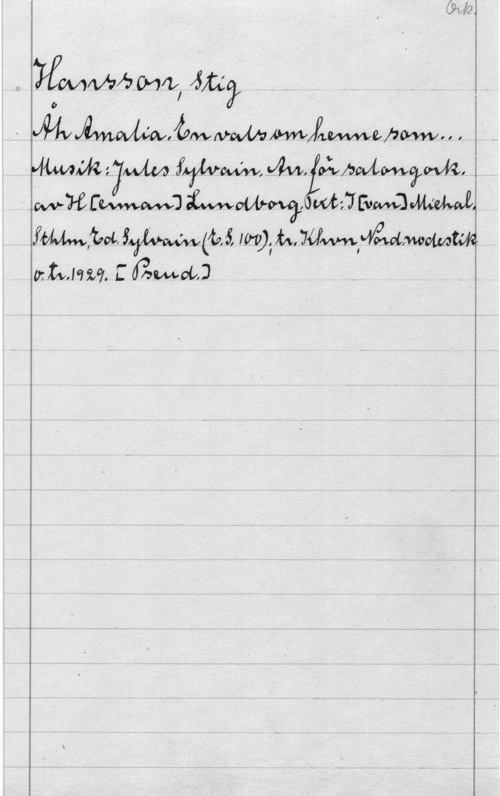 Ork.
Hansson, Stig
Åh Amalia. En vals om henne som...
Musik: Jules Sylvain. Arr. för salongork.
av H[erman] Lundborg. Text: I[van] Michal.
Sthlm, Ed. Sylvain (E.S. 100); tr. Khvn, Nord. nodestik
o. tr. 1929. [Pseud.]